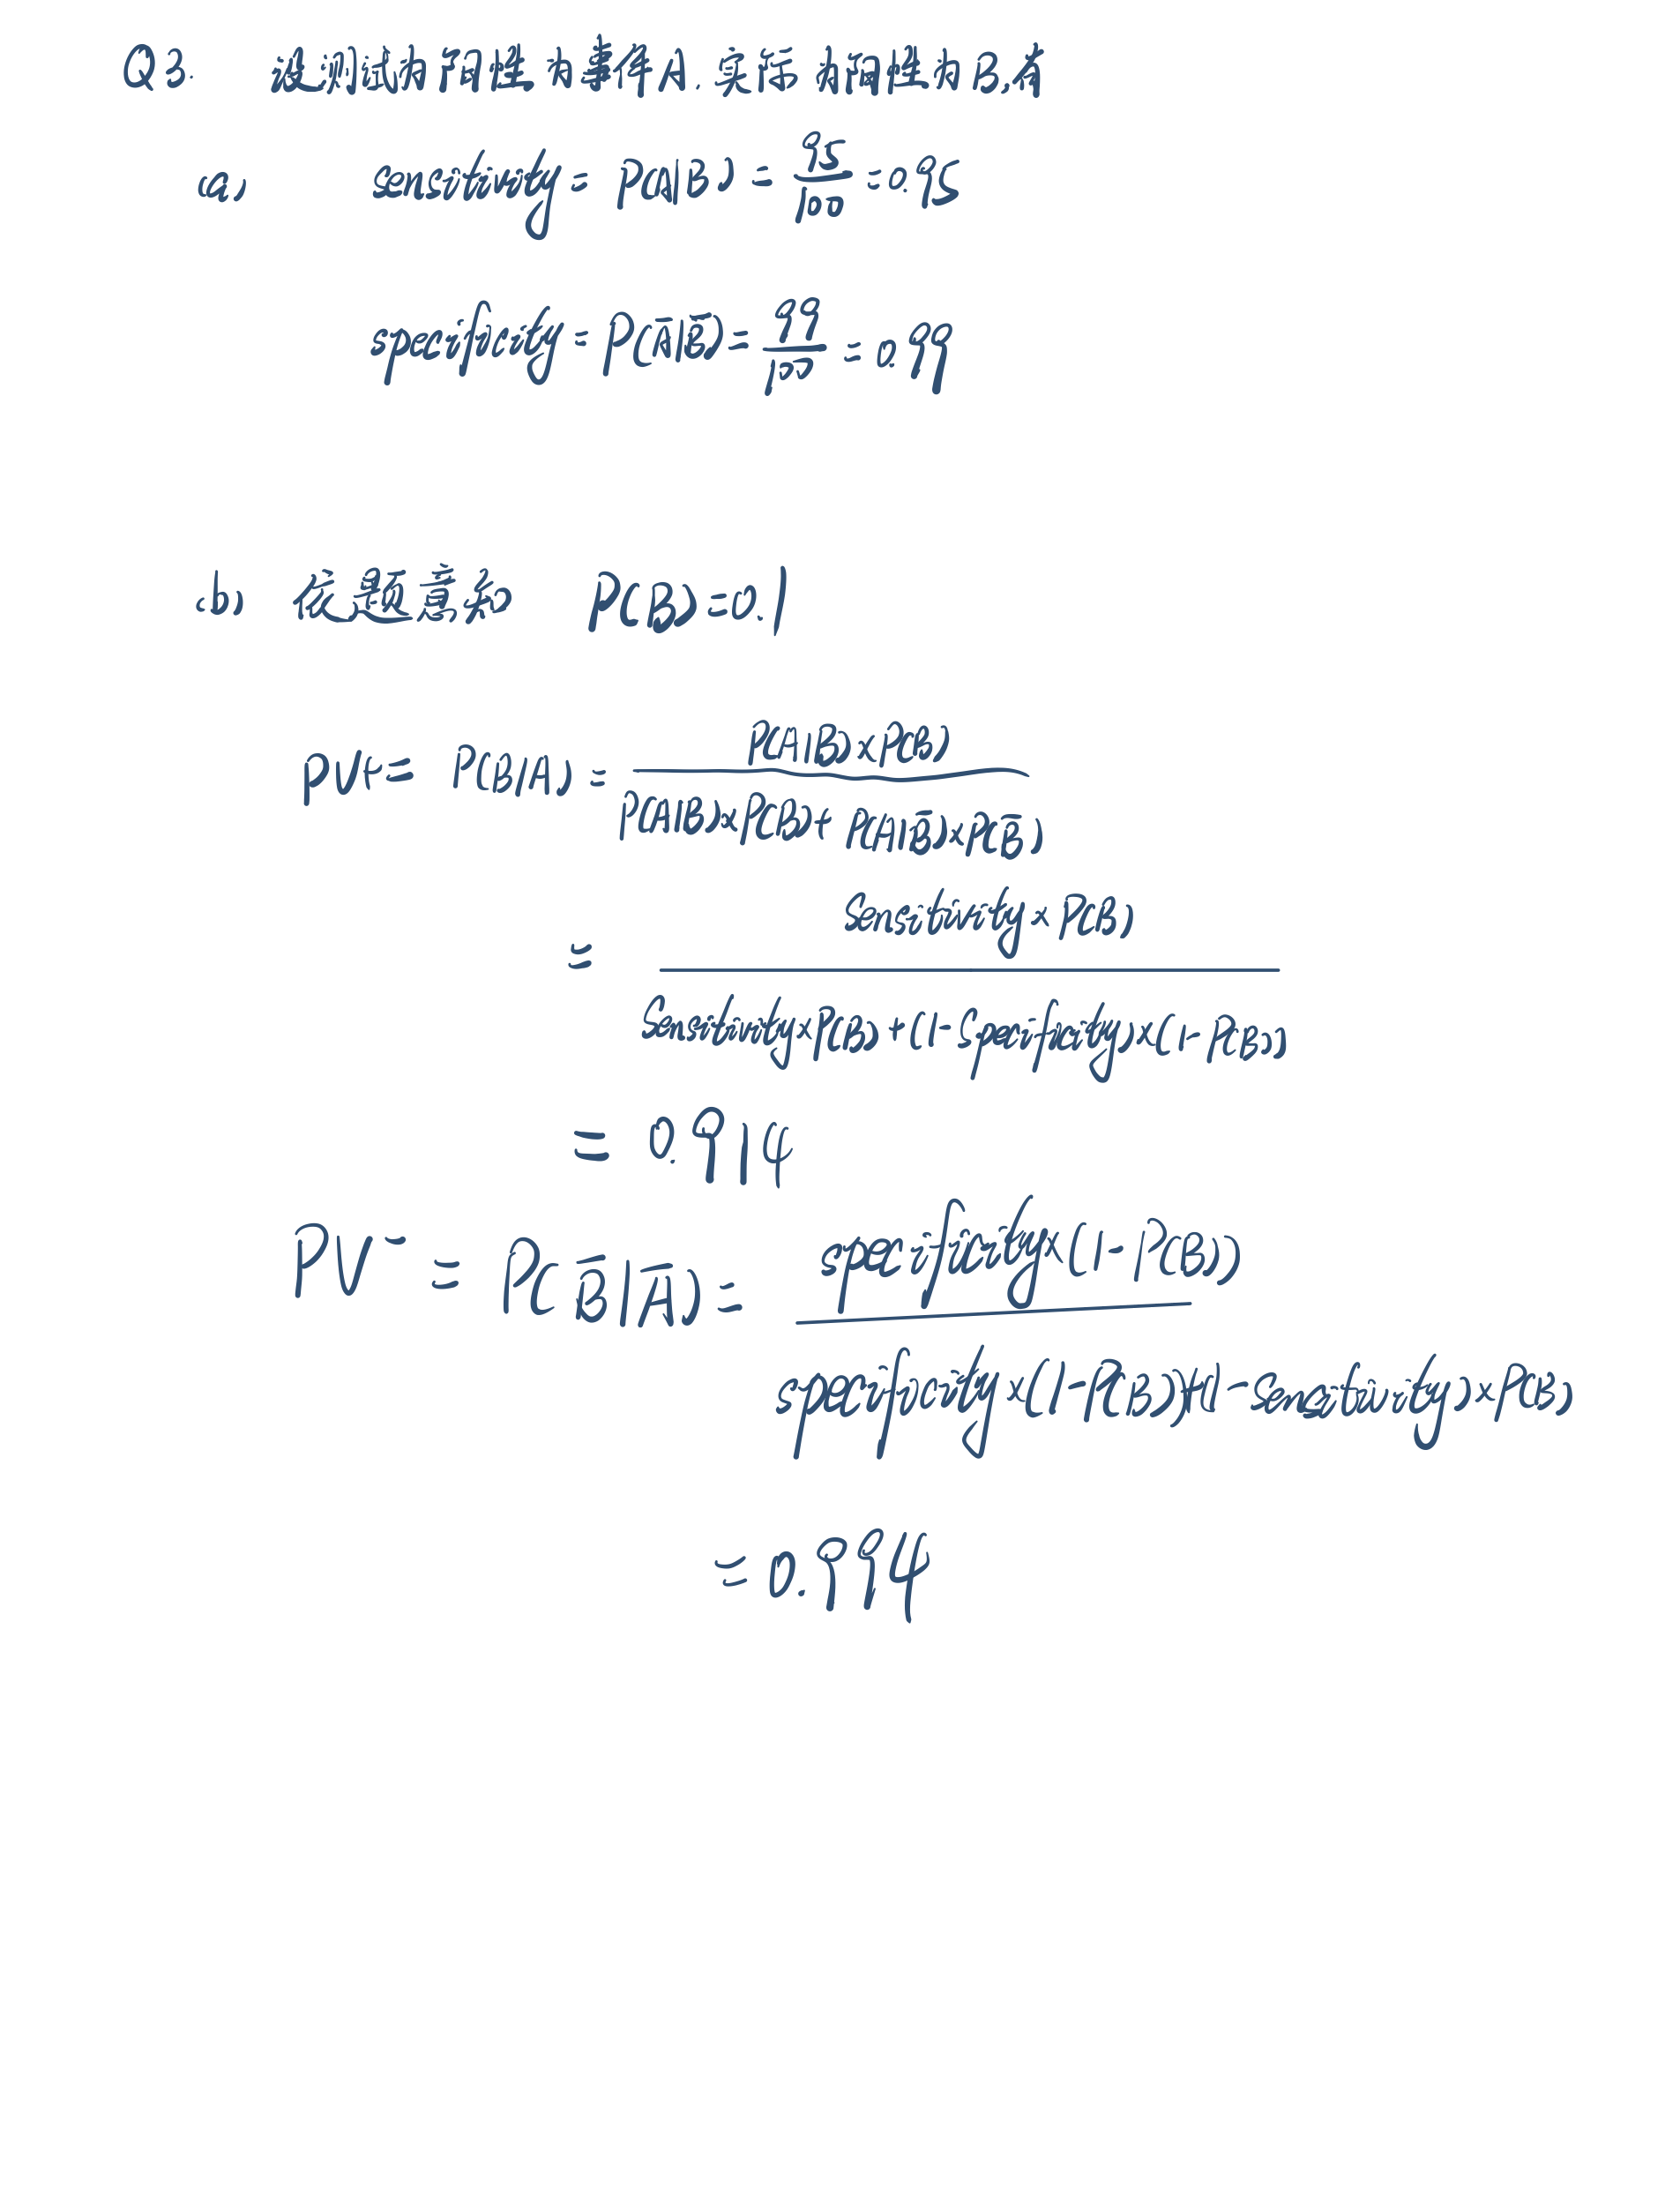 Q3. 设测试为阳性为事件A.实际为阳性为B,有
(a) sensitivity = P(A|B) = 95/100 = 0.95
specificity = P(Ā|B̄) = 99/100 = 0.99
(b) 依题意知 P(B)=0.1
PV+ = P(B|A) = P(A|B)×P(B) / P(A|B)×P(B)+P(A|B̄)×P(B̄)
= Sensitivity×P(B) / Sensitivity×P(B)+(1-Specificity)×(1-P(B))
= 0.914
PV- = P(B̄|Ā) = specificity×(1-P(B)) / specificity×(1-P(B))+(1-Sensitivity)×P(B)
= 0.994